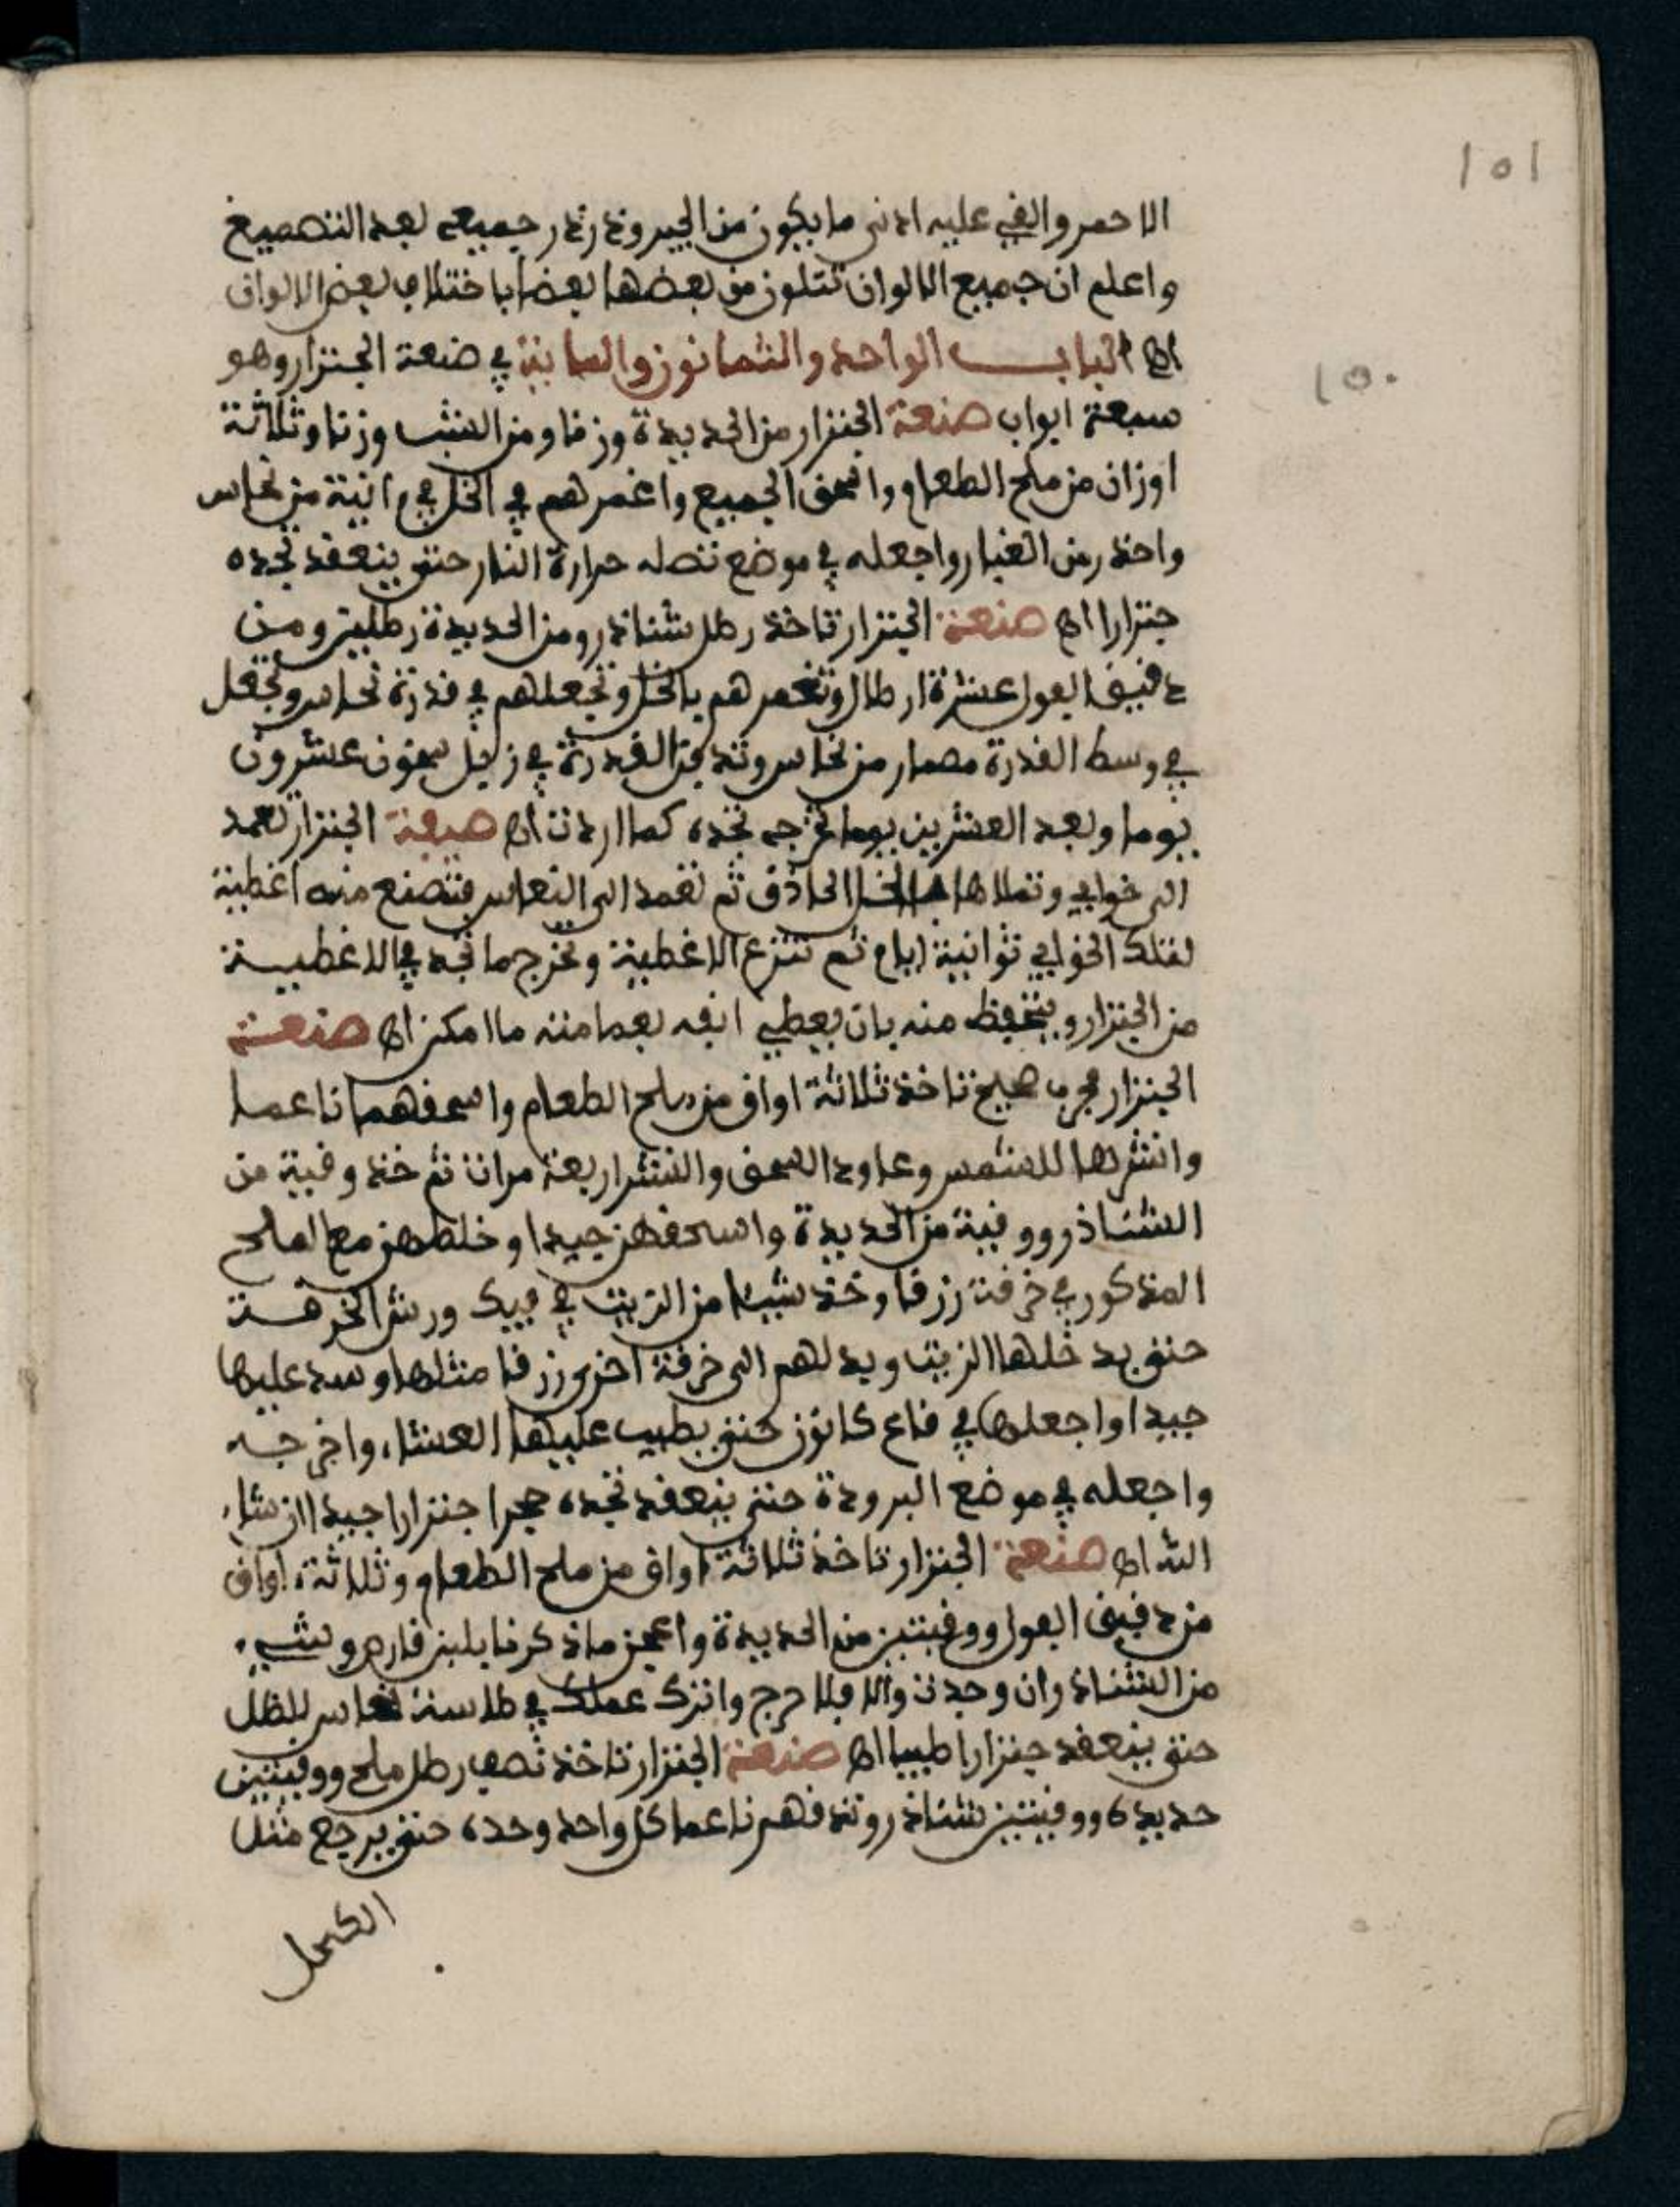 ١٥١
الاحمر والفي عليه ادنى ما يكون من الجير وتدرندر جميعه بعد التصميغ
واعلم ان جميع الالوان تتلون من بعضها بعضا باختلاف بعض الالوان
١٥٠
اه الباب الواحد والثمانون والمايتة في صنعة الجنزار وهو
سبعة ابواب صنعة الجنزار من الحديدة وزنا ومن الشب وزنا وثلاثة
اوزان من ملح الطعام واسحق الجميع واغمرهم في الخل في ءانية من نحاس
واحذر من الغبار واجعله في موضع تصله حرارة النار حتى ينعقد تجده
جنزارا اه صنعة الجنزار تاخذ رطل شناذر ومن الحديدة رطلين ومن
دفيق الفول عشرة ارطال وتغمرهم بالخل وتجعلهم في قدرة نحاس وتجعل
في وسط القدرة مصمار من نحاس وتدفن القدرة في زبل سخون عشرون
يوما وبعد العشرين يوما تخرجه تجده كما اردت اه صنعة الجنزار تعمد
الى خوابي وتملاها بالخل الحاذق ثم تعمد الى النحاس فتصنع منه اغطية
لتلك الخوابي ثوانية ايام ثم تنزع الاغطية وتخرج ما تجد في الاغطية
من الجنزار ويتحفظ منه بان يغطي انفه بعمامته ما امكن اه صنعة
الجنزار مجرب صحيح تاخذ ثلاثة اواق من ملح الطعام واسحقهما ناعما
وانشرها للشمس وعاود السحق والنشر اربعة مرات ثم خذ وقية من
الشناذر ووقية من الحديدة واسحقهن جيدا وخلطهن مع الملح
المذكور في خرقة زرقا وخذ شيئا من الزيت في فيك ورش الخرقة
حتى يدخلها الزيت وبدلهم الى خرقة اخرى زرقا مثلها وسد عليها
جيدا واجعلها في قاع كانون حتى يطيب عليها العشاء واخرجه
واجعله في موضع البرودة حتى ينعقد تجده حجرا جنزارا جيدا ان شاء
الله اه صنعة الجنزار تاخذ ثلاثة اواق من ملح الطعام وثلاثة اواق
من دفيق الفول ووقيتين من الحديدة واعجن ما ذكرنا بلبن قارص وشيء
من الشناذ وان وجدت والا فلا حرج واترك عملك في طاسة نحاس للظل
حتى ينعقد جنزارا طيبا اه صنعة الجنزار تاخذ نصف رطل ملح ووقيتين
حديدة ووقيتين شناذر وتدقهم ناعما كل واحد وحده حتى يرجع مثل
الكحل